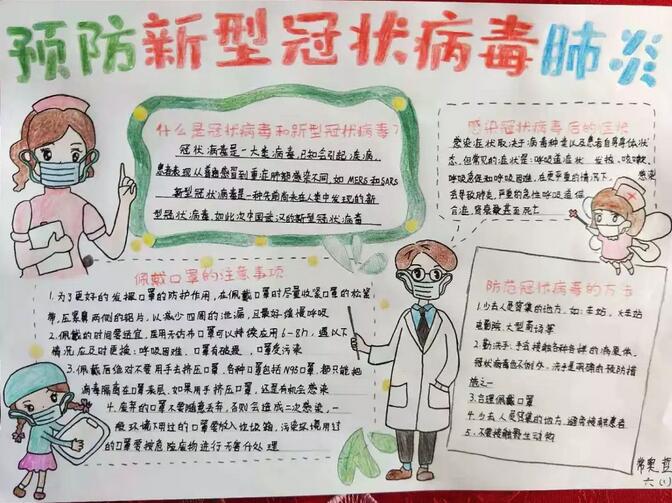 预防新型冠状病毒肺炎
什么是冠状病毒和新型冠状病毒?
冠状病毒是一大类病毒,已知会引起疾病,
患者表现从普通感冒到重症肺部感染不同,如MERS和SARS
新型冠状病毒是一种先前尚未在人类中发现的新
型冠状病毒,如此次中国武汉的新型冠状病毒
感染冠状病毒后的症状
感染症状取决于病毒种类以及患者自身身体状
态,但常见的症状是:呼吸道症状、发热、咳嗽、
呼吸急促和呼吸困难,在更严重的情况下,感染
会导致肺炎,严重的急性呼吸道综
合症,肾衰竭甚至死亡
佩戴口罩的注意事项
1.为了更好的发挥口罩的防护作用,在佩戴口罩时尽量收紧口罩的松紧
带,压紧鼻两侧的铝片,以减少四周的泄漏,且最好缓慢呼吸
2.佩戴的时间要适宜,医用无纺布口罩可以持续应用6-8h,遇以下
情况应及时更换:呼吸困难,口罩有破损,口罩受污染
3.佩戴后绝对不要用手去挤压口罩,各种口罩包括N95口罩,都只能把
病毒隔离在口罩表层,如果用手挤压口罩,还是有机会感染
4.废弃的口罩不要随意丢弃,否则会造成二次感染,一
般环境下用过的口罩要放入垃圾箱,污染环境用过
的口罩要按危险废物进行无害化处理
防范冠状病毒的方法
1.少去人员密集的地方,如:车站、火车站
电影院,大型商场等
2.勤洗手:手会接触各种各样的病原体,
冠状病毒也不例外,洗手是明确的预防措
施之一
3.合理佩戴口罩
4.少去人员密集的地方,避免接触患者
5.不要接触野生动物
六(1)